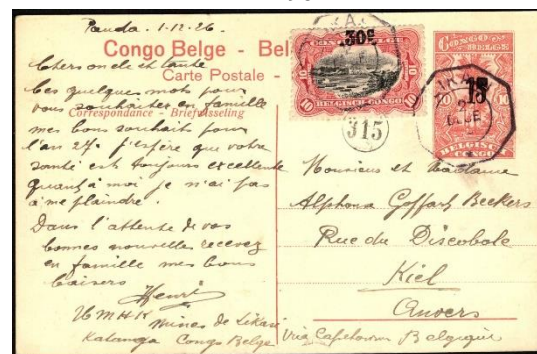 Panda. 1-12-26.
Congo Belge - Bel
Carte Postale -
Correspondance - Briefwisseling
Chers oncle et tante
Ces quelques mots pour
vous souhaiter en famille
mes bons souhaits pour
l'an 27. j'espère que votre
santé est toujours excellente
quant à moi je n'ai pas
à me plaindre.
Dans l'attente de vos
bonnes nouvelles recevez
en famille mes bons
baisers
Henri
UMHK Mines de Likasi
Katanga Congo Belge
CONGO BELGE
.30c
10 10
BELGISCH-CONGO
315
CONGO BELGE
15
10
BELGISCH CONGO
Monsieur et Madame
Alphons Goffart Beckers
Rue du Discobole
Kiel
Anvers
Via Capetown Belgique